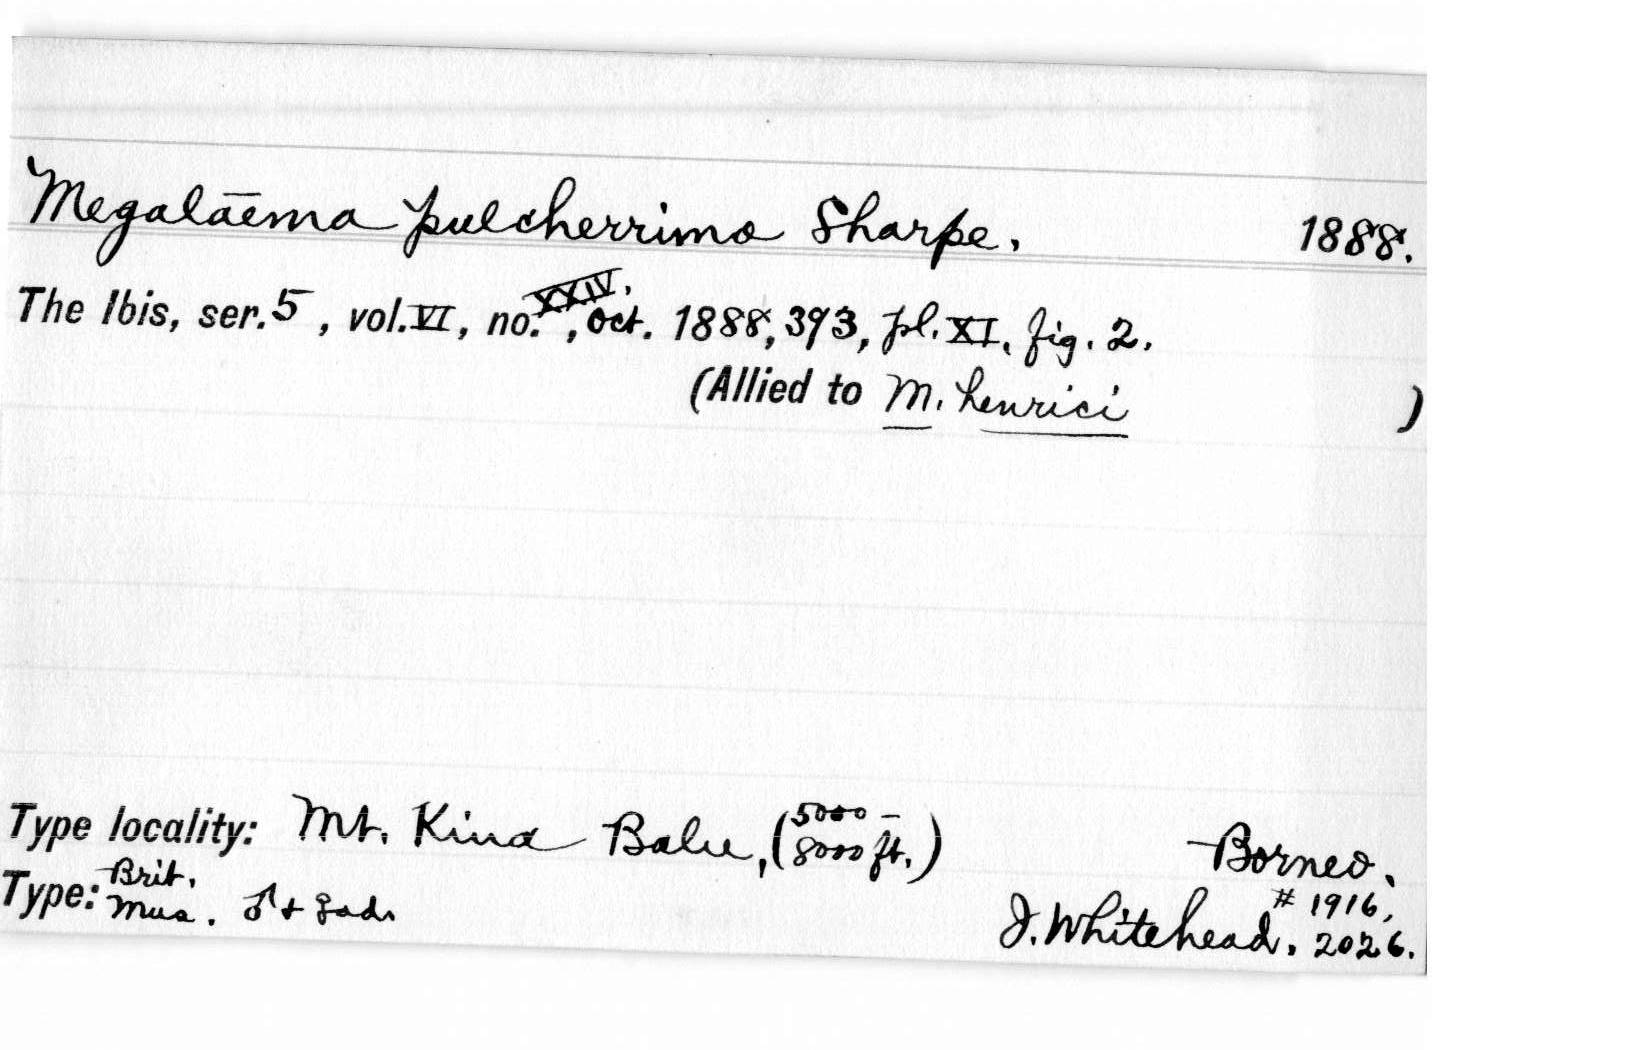 Megalāema pulcherrima Sharpe. 1888.
The Ibis, ser. 5, vol. VI, no. XXIV, Oct. 1888, 393, pl. XI, fig. 2.
(Allied to M. henrici )
Type locality: Mt. Kina Balu, (5000 – 8000 ft.) Borneo.
Type: Brit. Mus. ♂ + ♀ ad. J. Whitehead. # 1916, 2026.